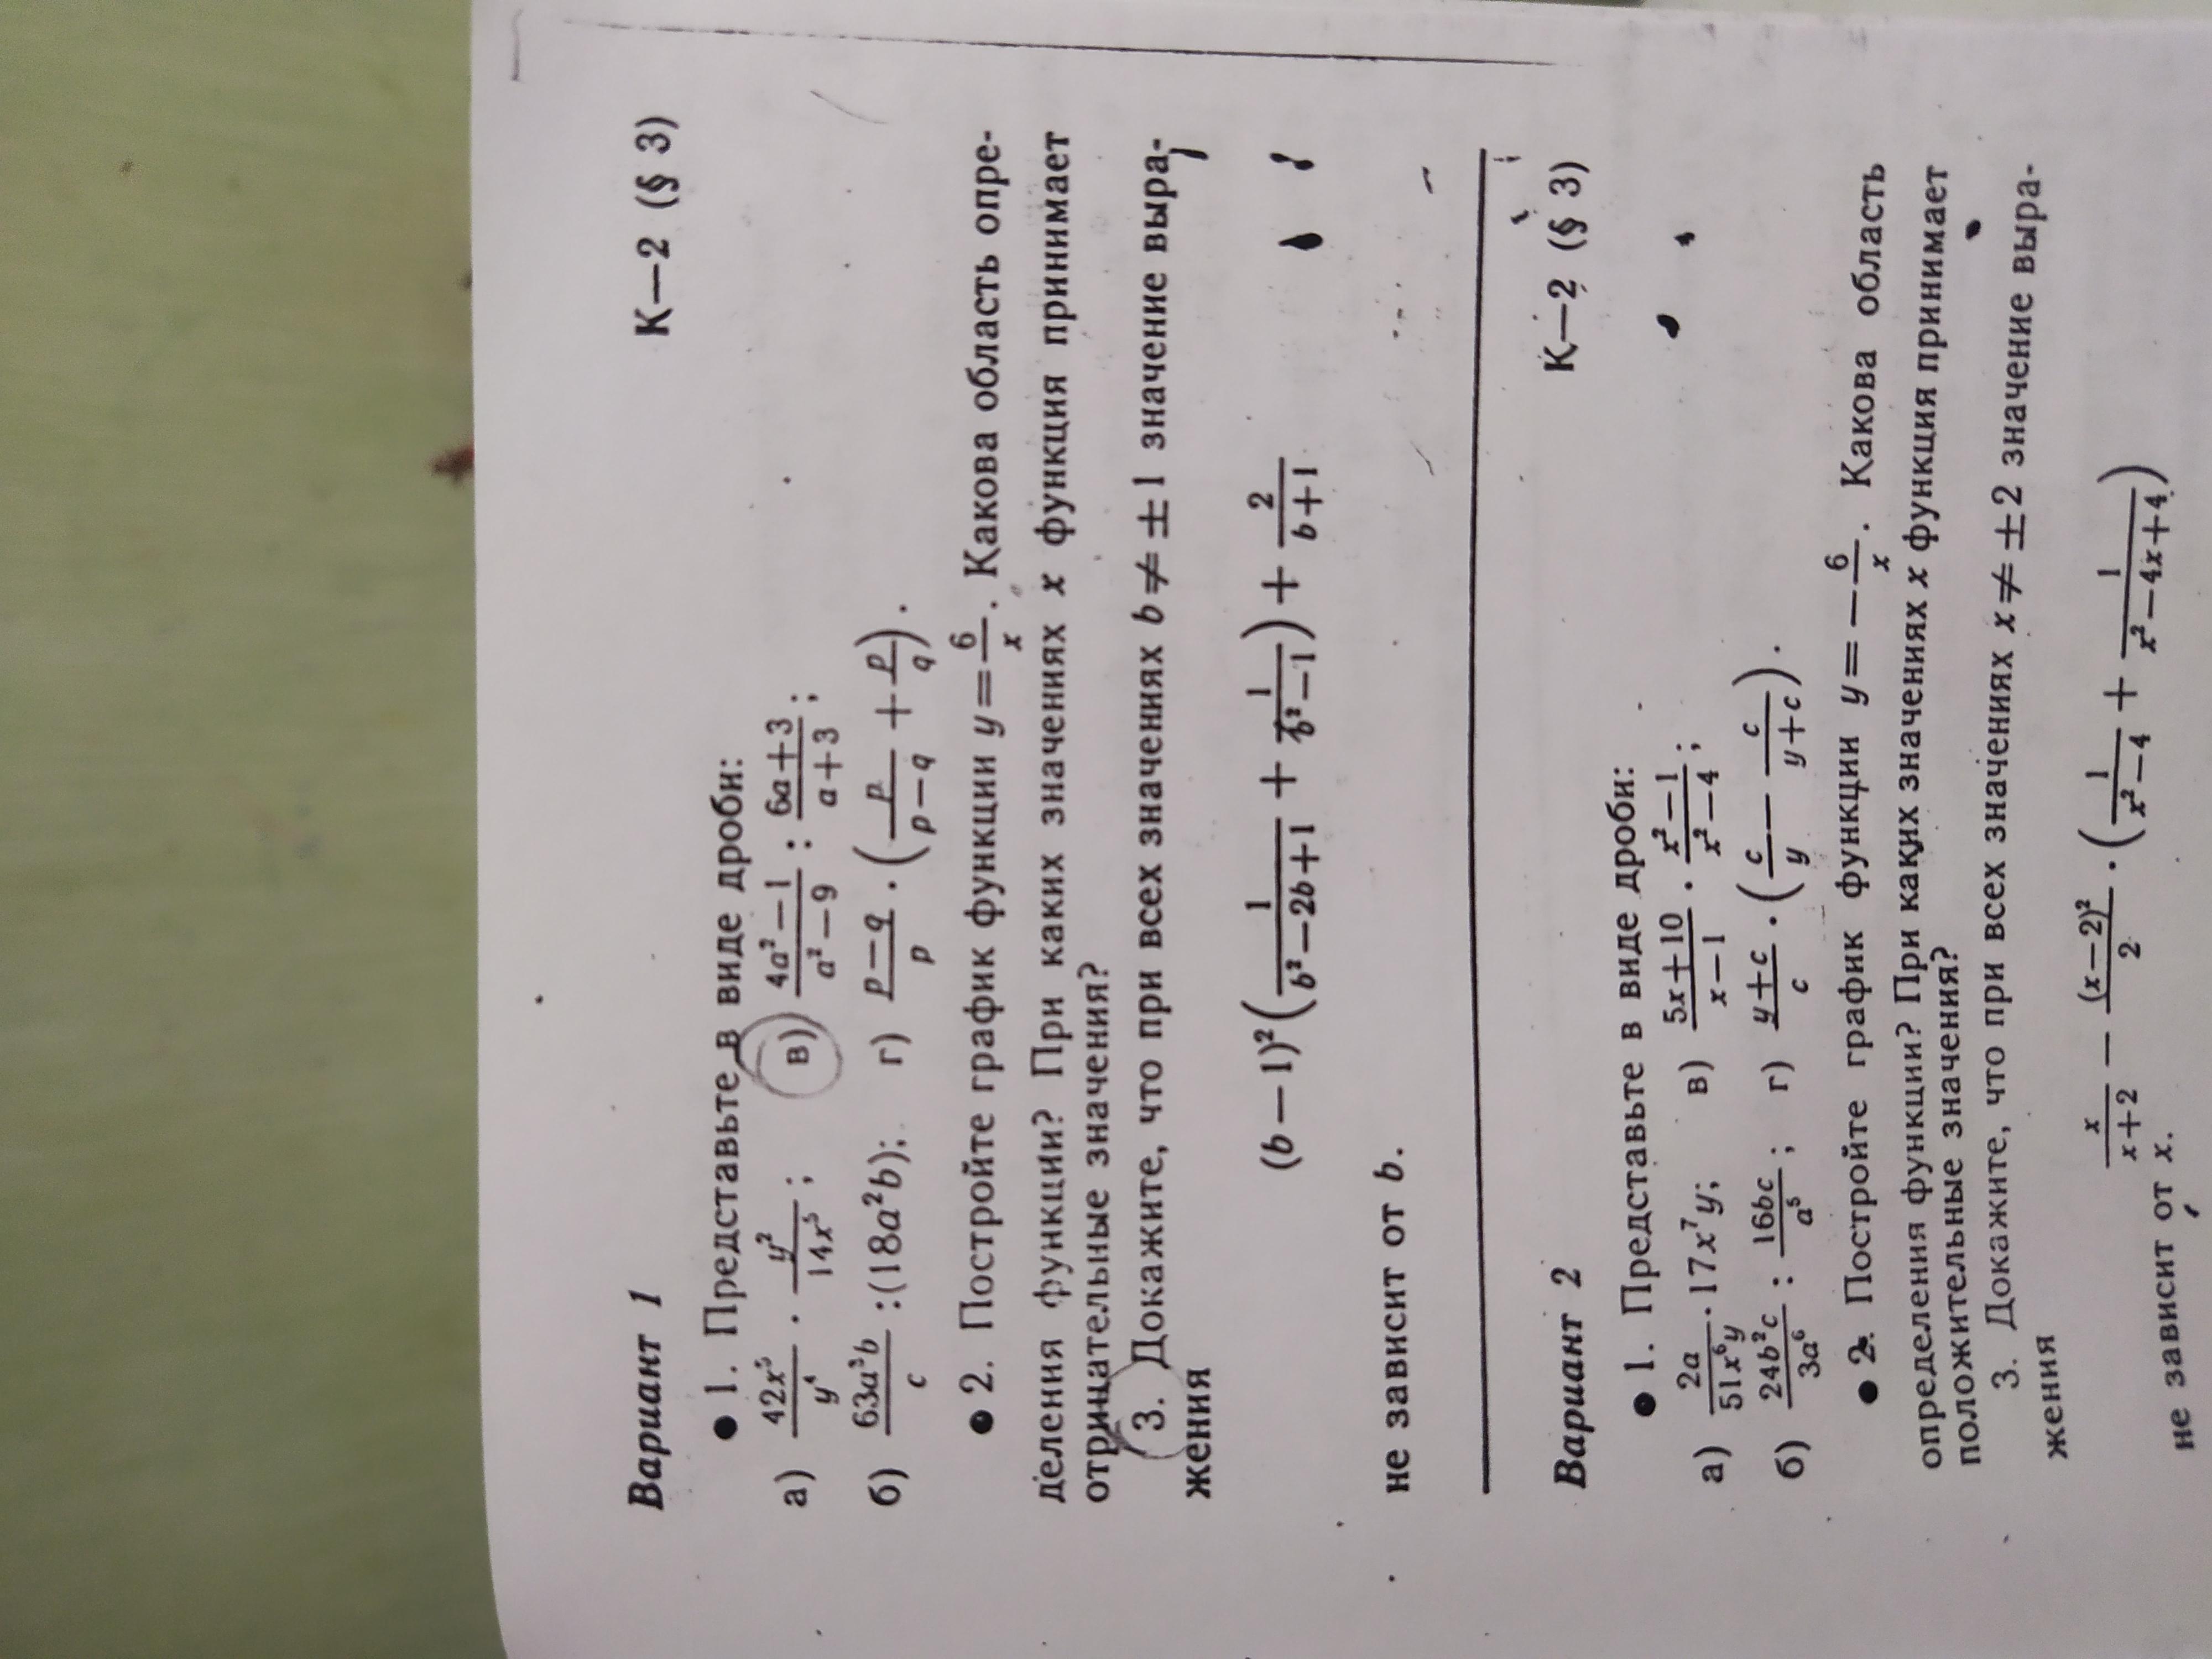 Вариант 1 К—2 (§ 3)
● 1. Представьте в виде дроби:
а) 42x⁵/y⁴ · y²/14x⁵; в) (4a²−1)/(a²−9) : (6a+3)/(a+3);
б) 63a³b/c : (18a²b); г) (p−q)/p · (p/(p−q) + p/q).
● 2. Постройте график функции y = 6/x. Какова область опре-
деления функции? При каких значениях x функция принимает
отрицательные значения?
3. Докажите, что при всех значениях b ≠ ±1 значение выра-
жения
(b−1)²(1/(b²−2b+1) + 1/(b²−1)) + 2/(b+1)
не зависит от b.
Вариант 2 К—2 (§ 3)
● 1. Представьте в виде дроби:
а) 2a/51x⁶y · 17x⁷y; в) (5x+10)/(x−1) · (x²−1)/(x²−4);
б) 24b²c/3a⁶ : 16bc/a⁵; г) (y+c)/c · (c/y − c/(y+c)).
● 2. Постройте график функции y = −6/x. Какова область
определения функции? При каких значениях x функция принимает
положительные значения?
3. Докажите, что при всех значениях x ≠ ±2 значение выра-
жения
x/(x+2) − (x−2)²/2 · (1/(x²−4) + 1/(x²−4x+4))
не зависит от x.